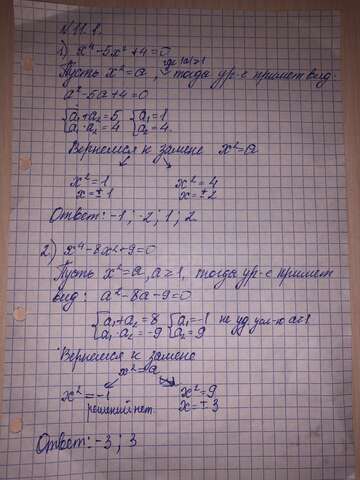 N 11.1.
1) x⁴-5x²+4=0
Пусть x²=a, где |a|≥1 тогда ур-е примет вид:
a²-5a+4=0
{a₁+a₂=5, {a₁=1
{a₁·a₂=4 {a₂=4.
Вернемся к замене x²=a
x²=1 x²=4
x=±1 x=±2
Ответ: -1; -2; 1; 2
2) x⁴-8x²+9=0
Пусть x²=a, a≥1, тогда ур-е примет
вид: a²-8a-9=0
{a₁+a₂=8 {a₁=-1 не уд. усл-ю a≥1
{a₁·a₂=-9 {a₂=9
Вернемся к замене
x²=a
x²=-1 x²=9
решений нет. x=±3
Ответ: -3; 3